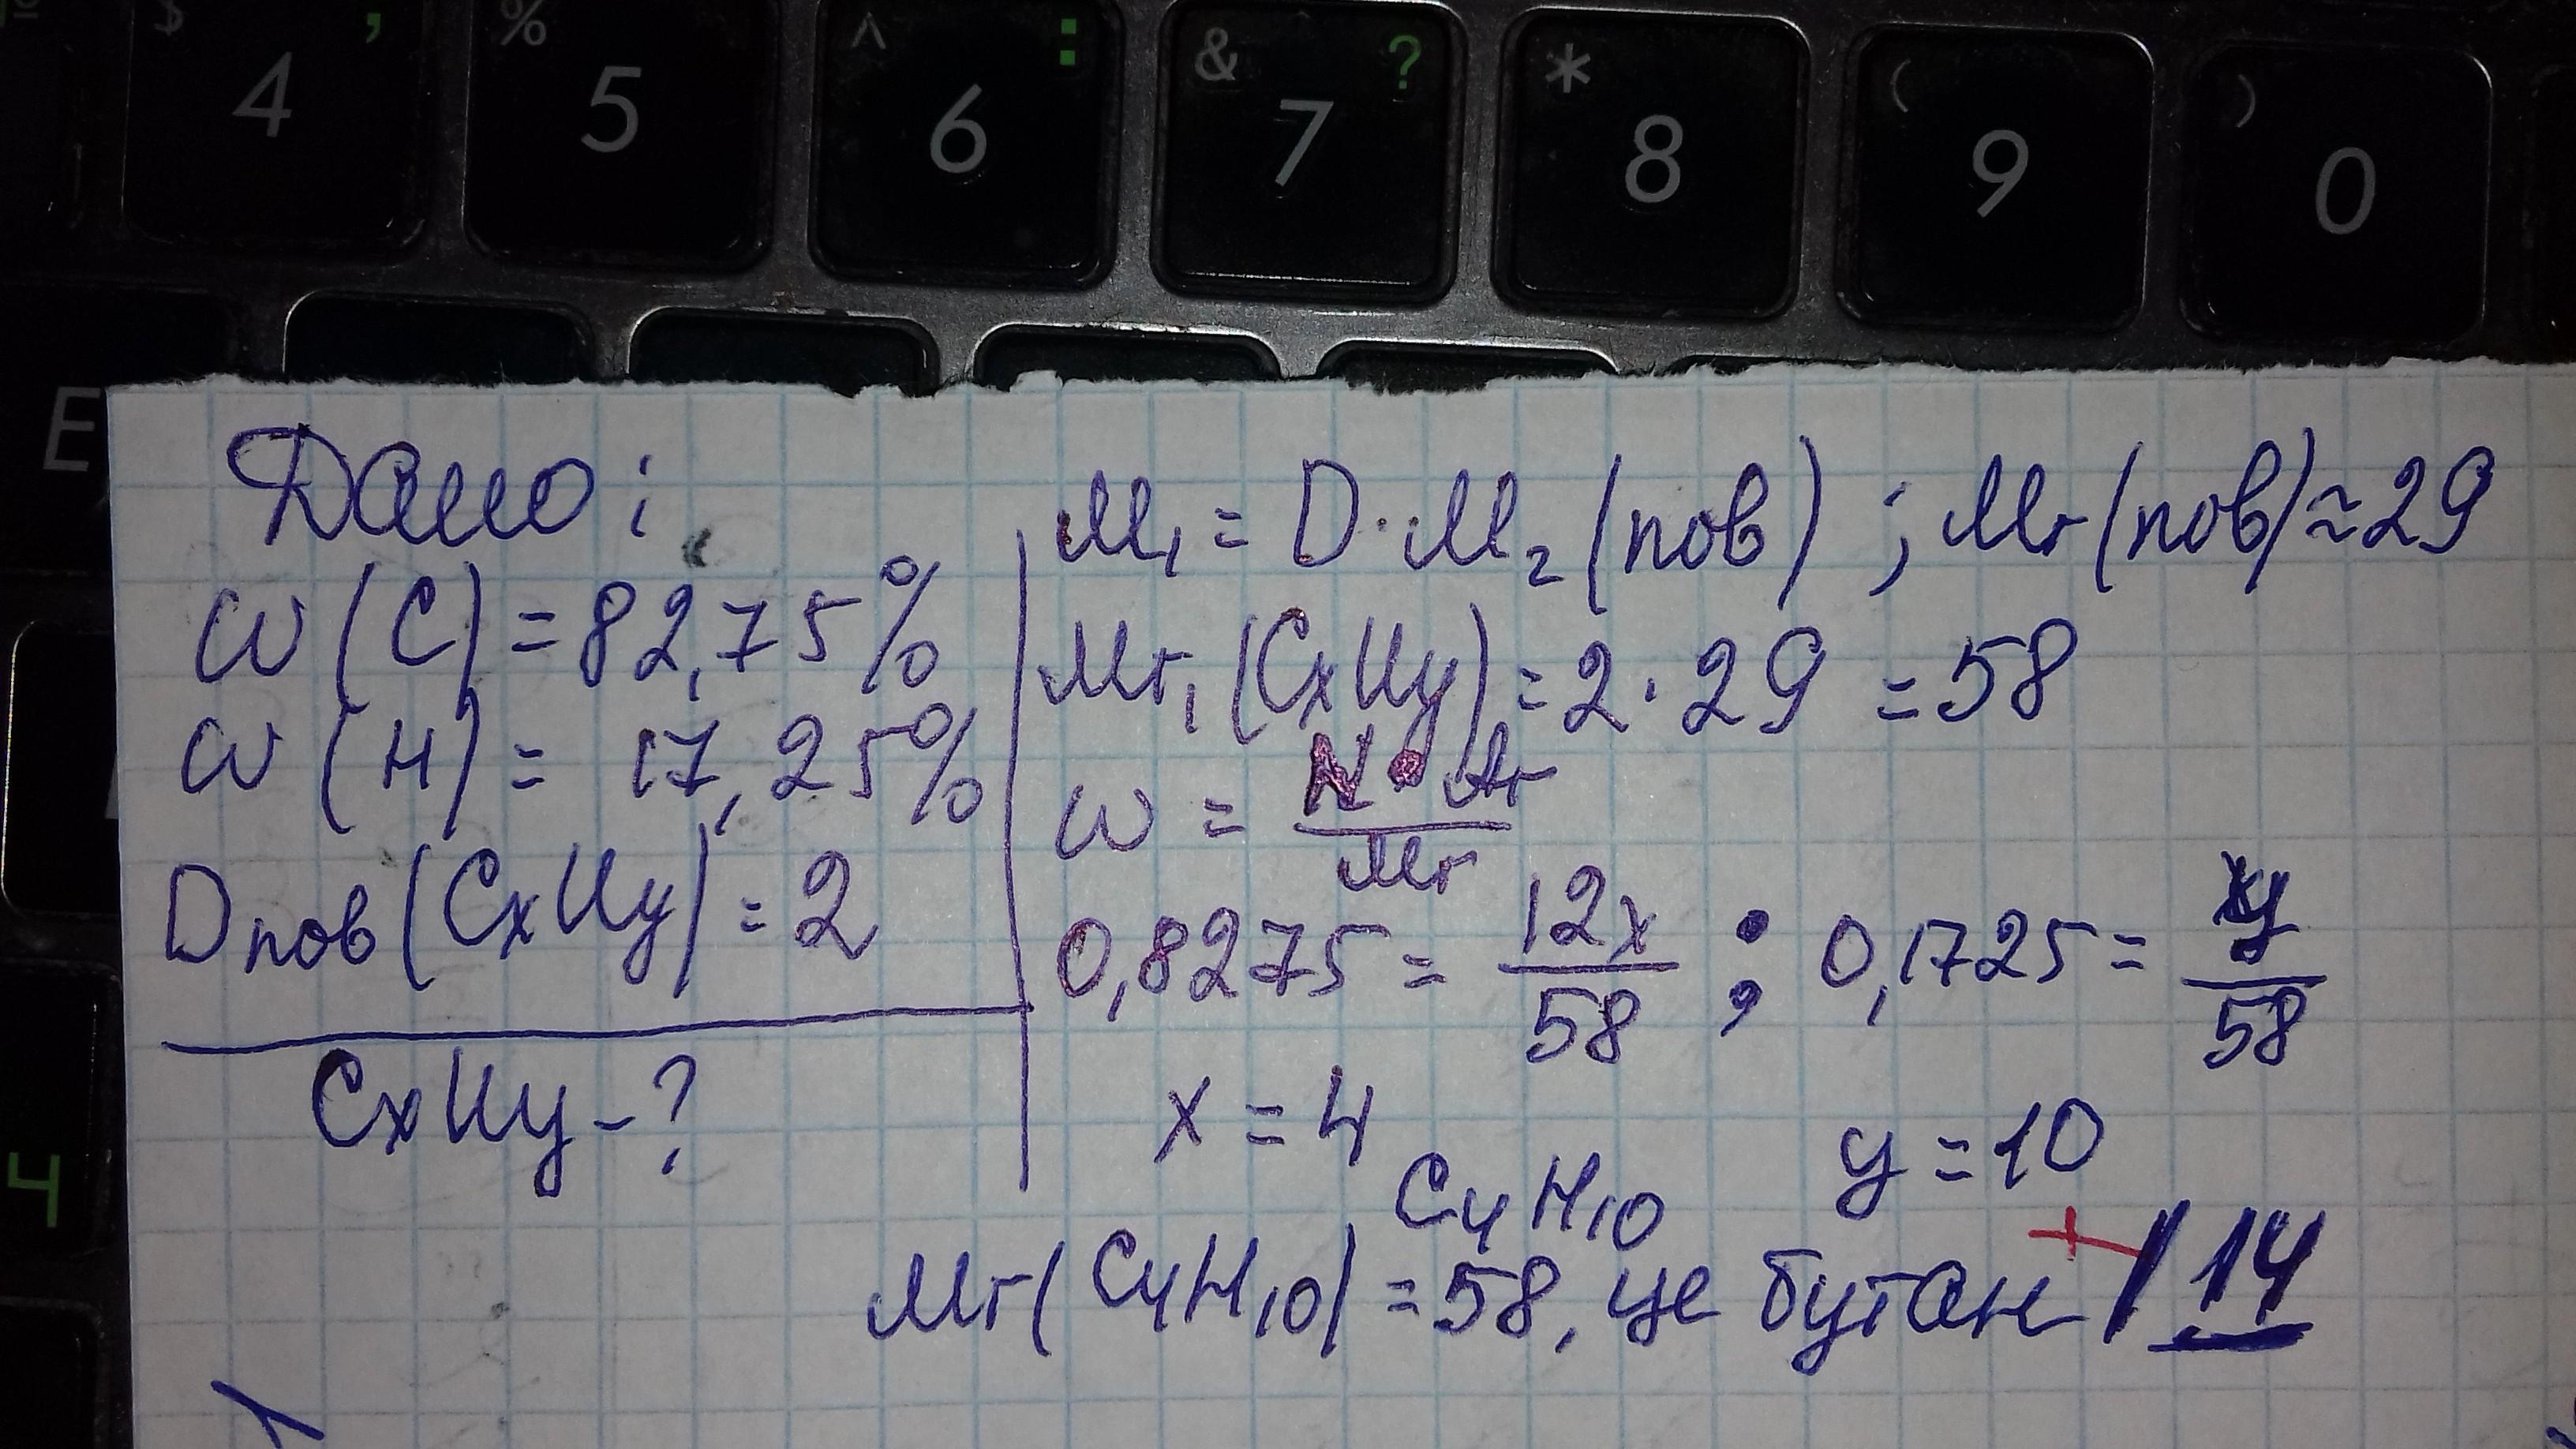 $ 4 , % 5 ^ 6 : & 7 ? * 8 ( 9 ) 0
E
Ч
Дано:
W (C) = 82,75%
W (H) = 17,25%
Dпов (CxHy) = 2
CxHy - ?
M₁ = D · M₂ (пов) ; Mr (пов) ≈ 29
Mr₁ (CxHy) = 2 · 29 = 58
W = N • Ar / Mr
0,8275 = 12x / 58 ; 0,1725 = y / 58
x = 4 y = 10
C₄H₁₀
Mr (C₄H₁₀) = 58, це бутан
+ 14